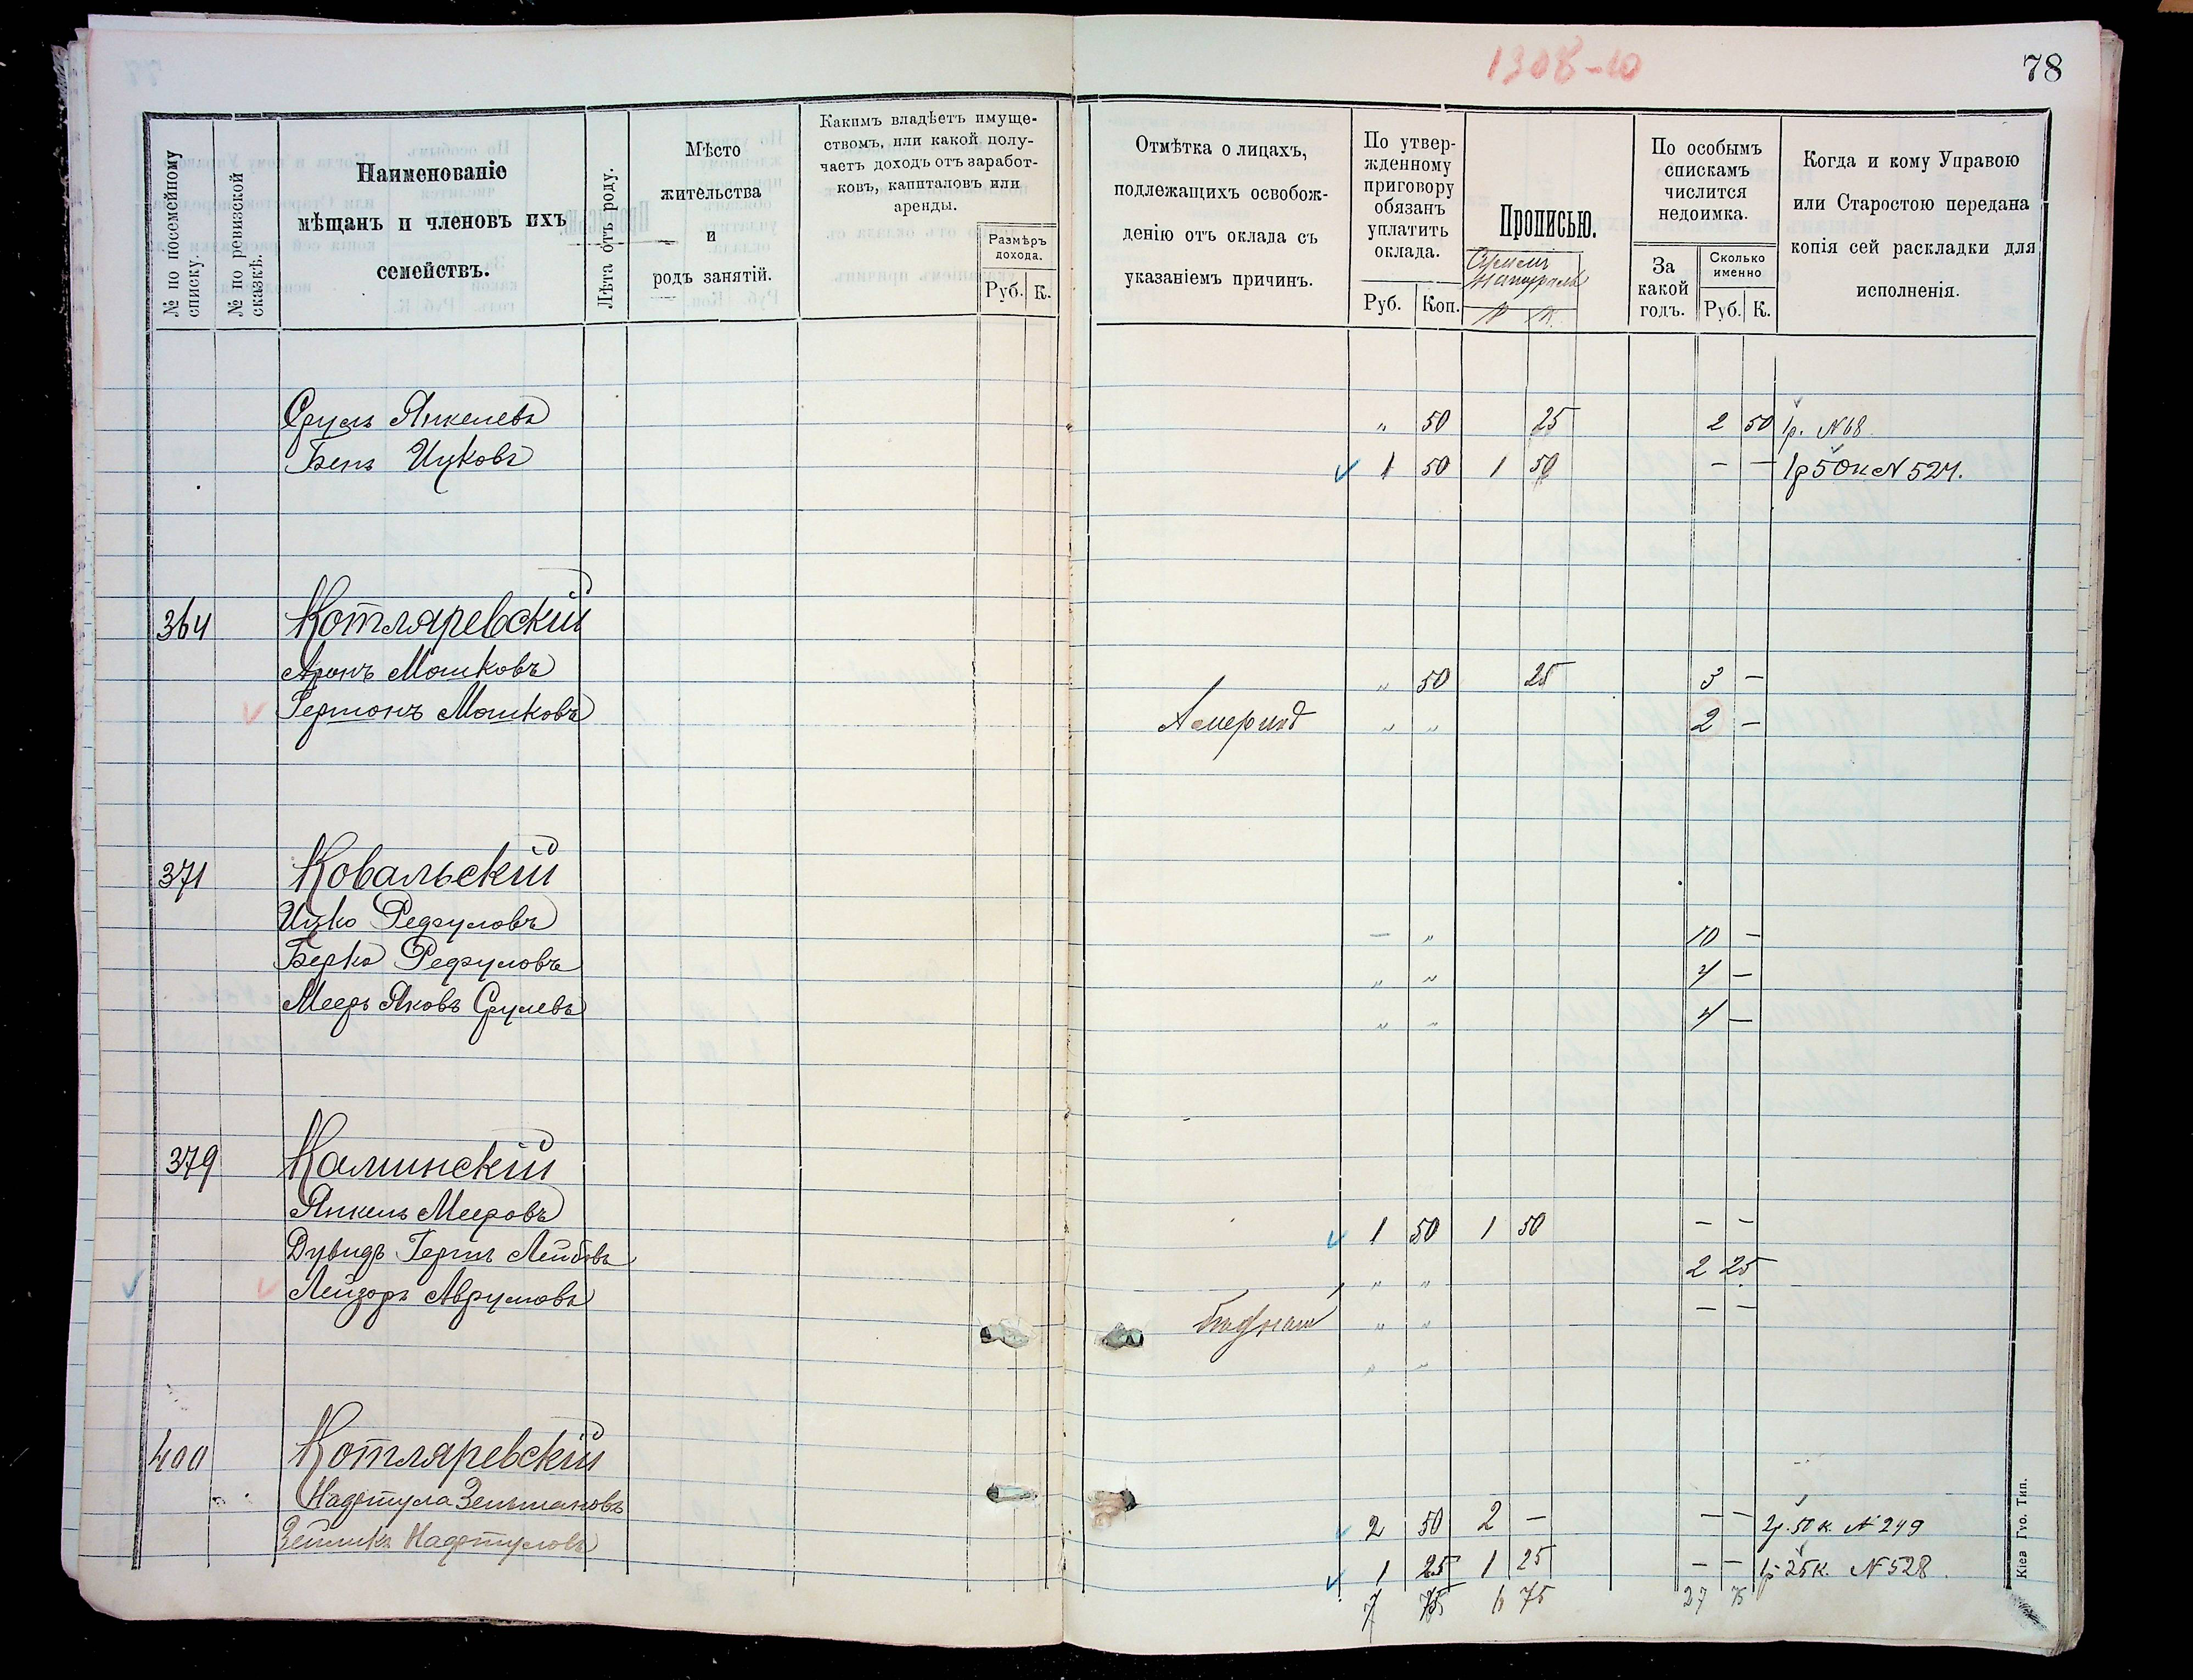 1308-10
78
№ по посемейному списку.
№ по ревизской сказкѣ.
Наименованіе
мѣщанъ и членовъ ихъ
семействъ.
Лѣта отъ роду.
Мѣсто
жительства
и
родъ занятій.
Какимъ владѣетъ имуще-
ствомъ, или какой полу-
чаетъ доходъ отъ заработ-
ковъ, капиталовъ или
аренды.
Размѣръ
дохода.
Руб. К.
Отмѣтка о лицахъ,
подлежащихъ освобож-
денію отъ оклада съ
указаніемъ причинъ.
По утвер-
жденному
приговору
обязанъ
уплатить
оклада.
Руб. Коп.
Прописью.
Р К.
По особымъ
спискамъ
числится
недоимка.
За
какой
годъ.
Сколько
именно
Руб. К.
Когда и кому Управою
или Старостою передана
копія сей раскладки для
исполненія.
Сруль Янкелевъ " 50 25 2 50 1р. N 68
Бенъ Ицковъ 1 50 1 50 — — 1р 50к N 527.
364 Котляревскій
Аронъ Мошковъ " 50 25 3 —
Гершонъ Мошковъ " " 2 —
371 Ковальскій
Ицко Рефуловъ — " 10 —
Берко Рефуловъ " " 4 —
Мееръ Яковъ Срулевъ " " 4 —
379 Калинскій
Янкель Мееровъ 1 50 1 50 — —
Дувидъ Герш Лейбовъ " " 2 25
Лейзоръ Аврумовъ " " — —
" "
400 Котляревскій
Нафтула Зельмановъ 2 50 2 — — — 2р. 50 к. N 249
Зейликъ Нафтуловъ 1 25 1 25 — — 1р 25к. N 528.
7 75 6 75 27 75
Кіев Гуо. Тип.